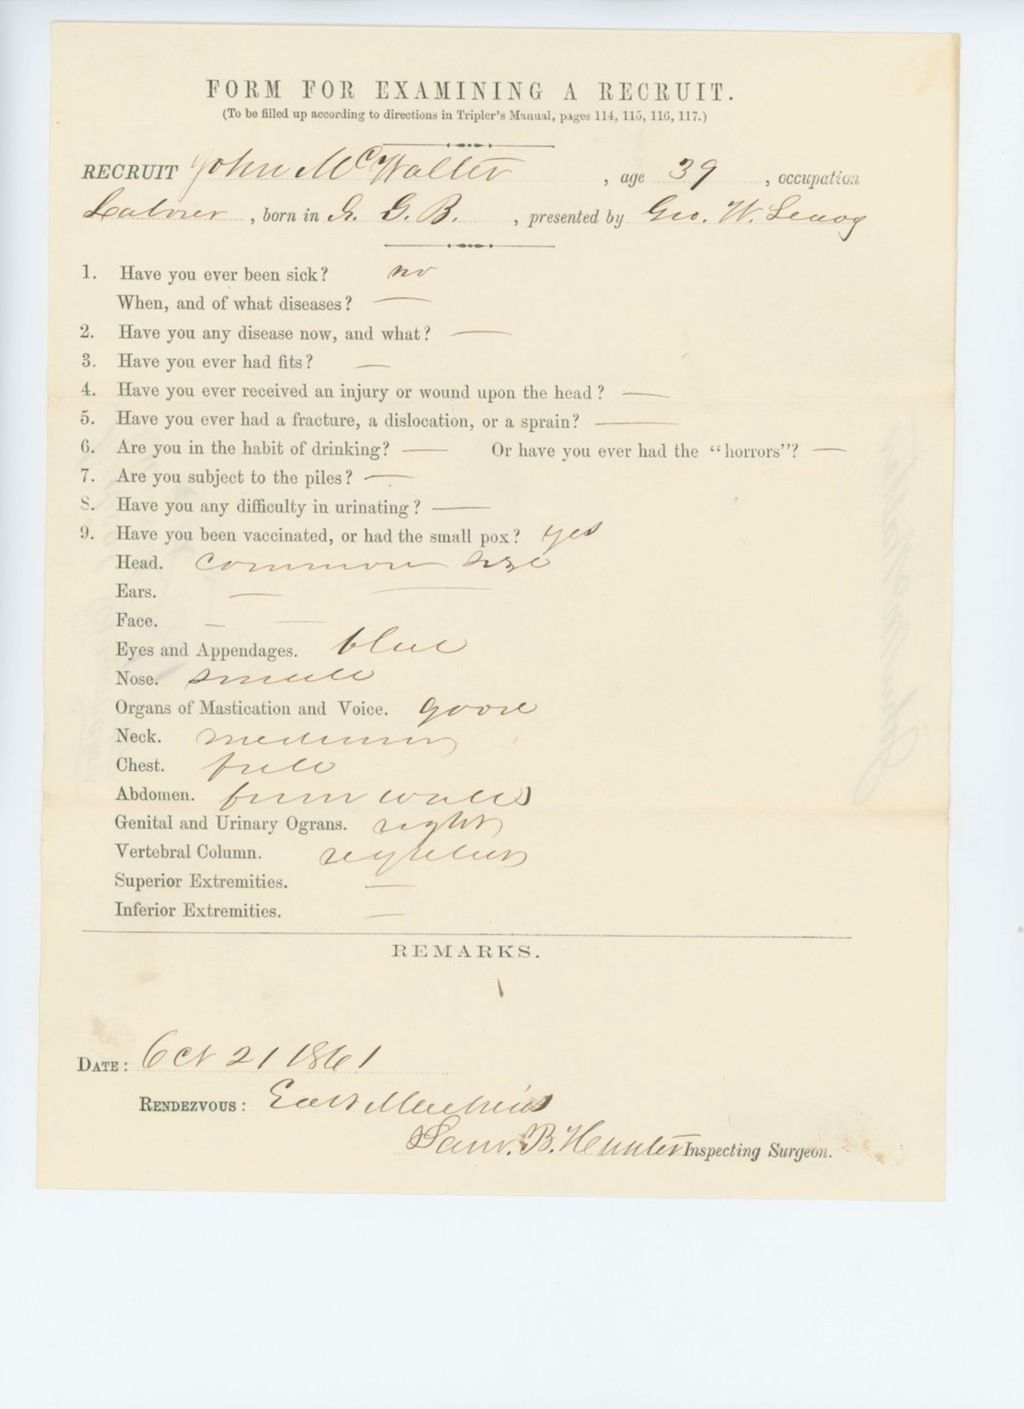 FORM FOR EXAMINING A RECRUIT.
(To be filled up according to directions in Tripler's Manual, pages 114, 115, 116, 117.)
RECRUIT John McWalter, age 39, occupation
Laborer, born in G. B., presented by Geo. W.
1. Have you ever been sick? no
When, and of what diseases? —
2. Have you any disease now, and what? —
3. Have you ever had fits? —
4. Have you ever received an injury or wound upon the head? —
5. Have you ever had a fracture, a dislocation, or a sprain? —
6. Are you in the habit of drinking? — Or have you ever had the "horrors"? —
7. Are you subject to the piles? —
8. Have you any difficulty in urinating? —
9. Have you been vaccinated, or had the small pox? yes
Head. common size
Ears. — —
Face. — —
Eyes and Appendages. blue
Nose. small
Organs of Mastication and Voice. good
Neck. medium
Chest. full
Abdomen. firm walls
Genital and Urinary Ograns. right
Vertebral Column. regular
Superior Extremities. —
Inferior Extremities. —
REMARKS.
DATE: Oct 21 1861
RENDEZVOUS: East Machias
Saml. B. Hunter Inspecting Surgeon.